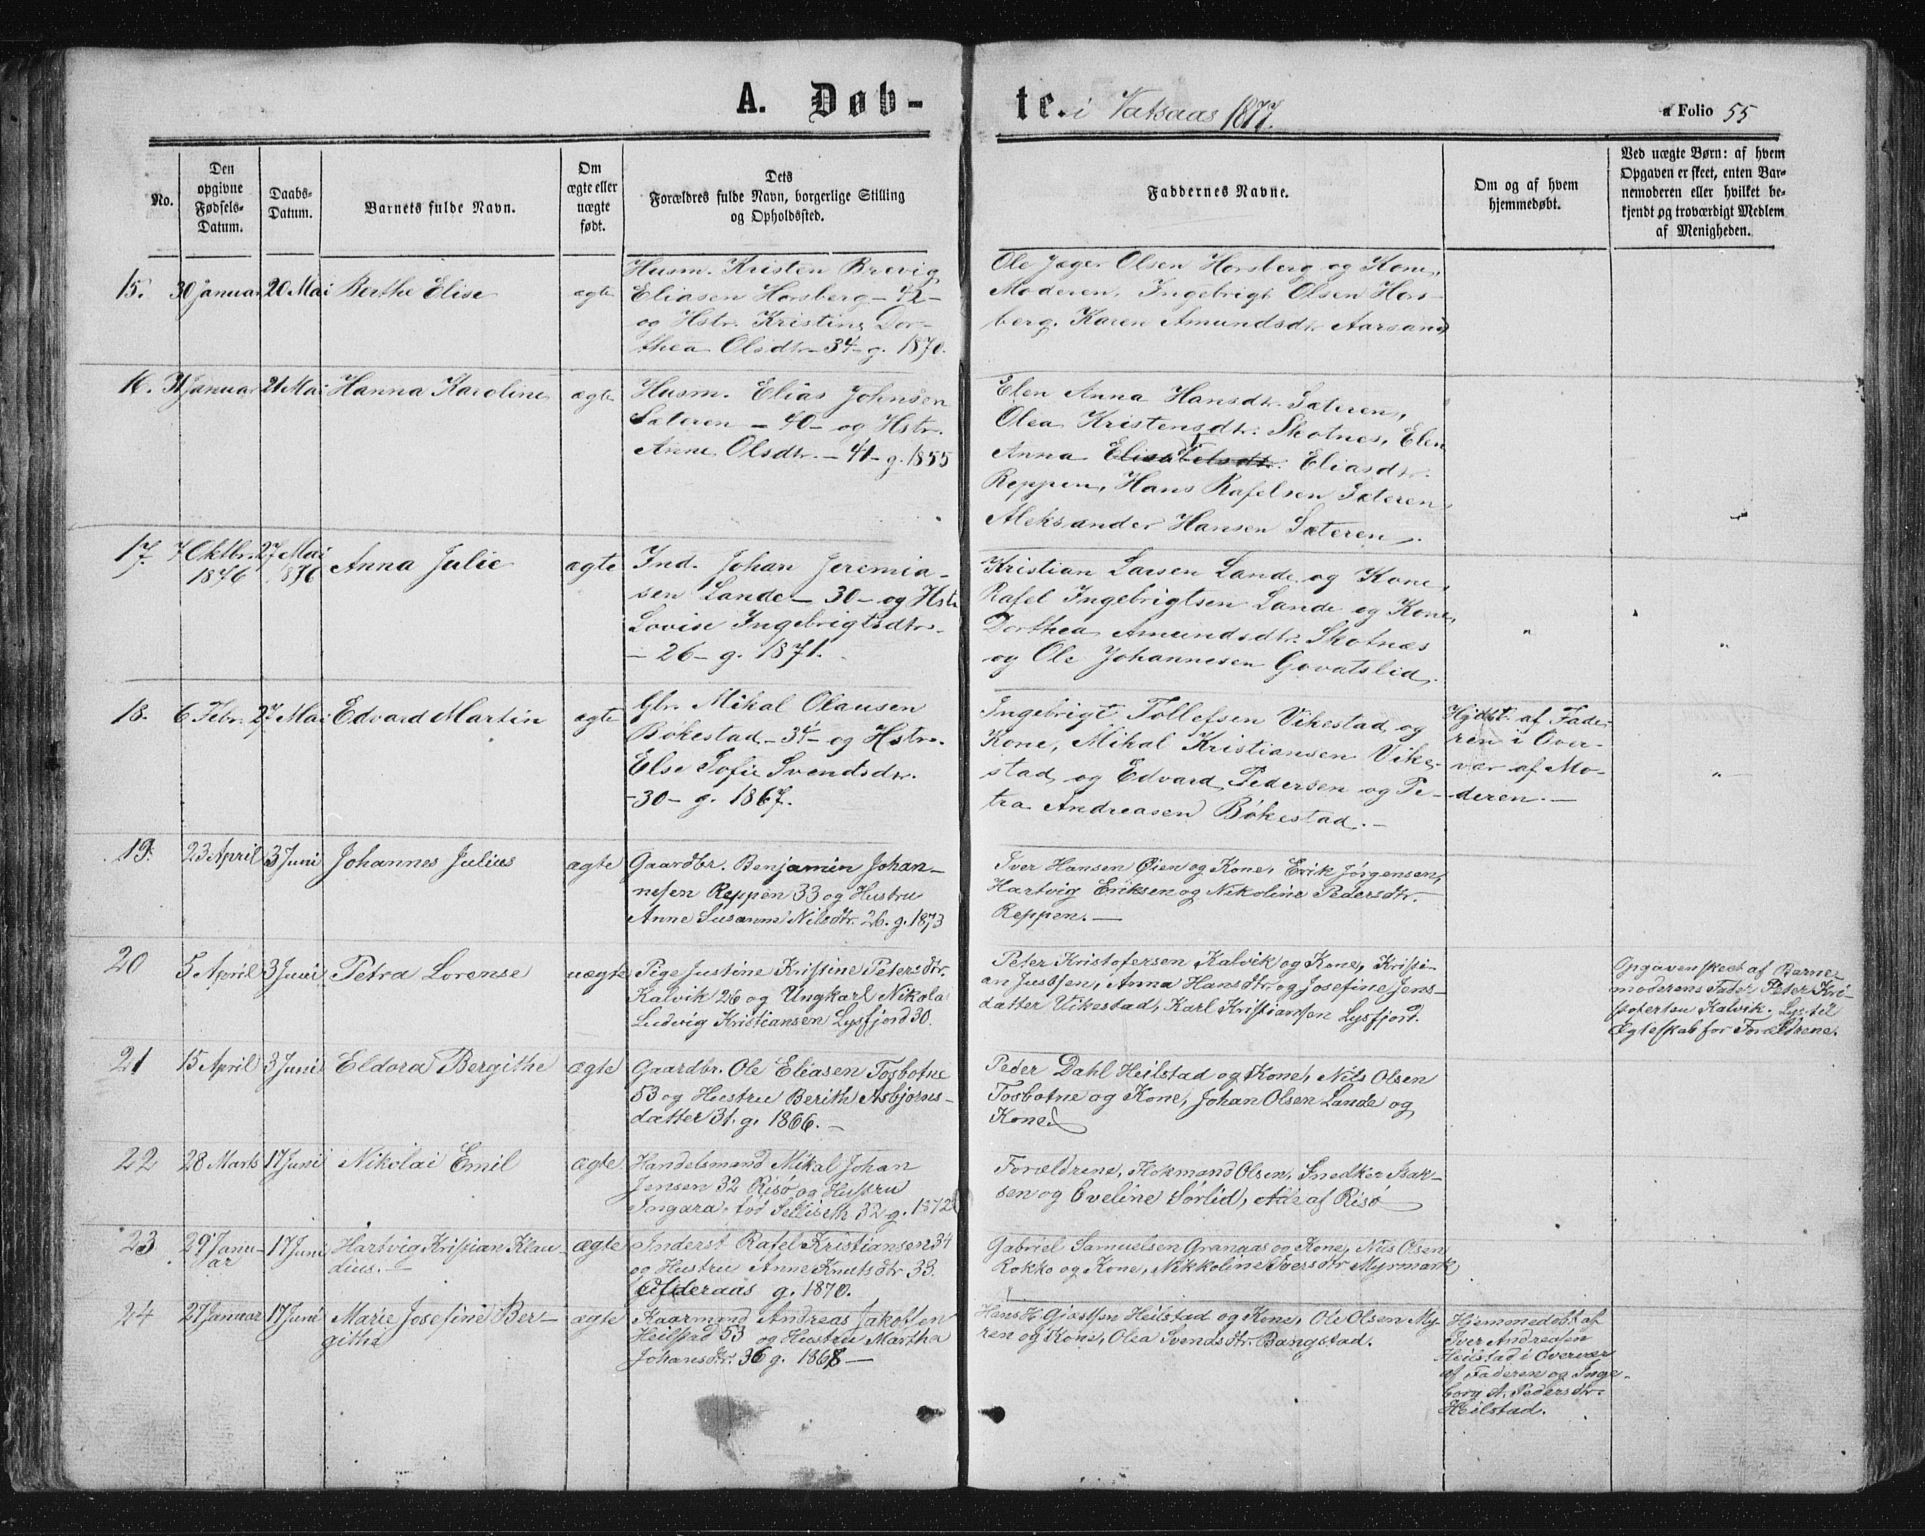 A. Døb-
te. i Vatsaas 1877.
a Folio 55
No.
Den opgivne Fødsels-Datum.
Daabs-Datum.
Barnets fulde Navn.
Om ægte eller uægte født.
Dets Forældres fulde Navn, borgerlige Stilling og Opholdssted.
Faddernes Navne.
Om og af hvem hjemmedøbt.
Ved uægte Børn: af hvem Opgaven er skeet, enten Barnemoderen eller hvilket bekjendt og troværdigt Medlem af Menigheden.
15. 30 Januar 20 Mai Berthe Elise ægte
Husm. Kristen Brevig
Eliasen Horsberg - 42 -
og Hstr. Kristine Dor-
thea Olsdtr - 34 - g. 1870.
Ole Jæger Olsen Horsberg og Kone,
Moderen, Ingebrigt Olsen Hors-
berg. Karen Amundsdtr Aarsand
16. 31 Januar 21 Mai Hanna Karoline ægte
Husm. Elias Johnsen
Sæteren - 40 - og Hstr.
Anne Olsdtr. - 41 - g. 1855
Elen Anna Hansdtr. Sæteren,
Olea Kristensdtr. Skotnes, Elen
Anna Eliasdtr.
Reppen, Hans Rafelsen Sæteren,
Aleksander Hansen Sæteren.
17. 7 Oktbr. 1876 27 Mai 1876 Anna Julie ægte
Ind. Johan Jeremia-
sen Lande - 30 - og Hstr
Lovise Ingebrigtsdtr.
- 26 - g. 1871.
Kristian Larsen Lande og Kone,
Rafel Ingebrigtsen Lande og Kone,
Dorthea Amundsdtr. Skotnæs
og Ole Johannesen Govatslid.
"
"
18. 6 Febr. 27 Mai Edvard Martin ægte
Gbr. Mikal Olausen
Bøkestad - 34 - og Hstr.
Else Sofie Svendsdtr.
- 30 - g. 1867.
Ingebrigt Tollefsen Vikestad og
Kone, Mikal Kristiansen Vike-
stad og Edvard Pedersen og Pe-
tra Andreasen Bøkestad. -
Hjdbt. af Fade-
ren i Over-
vær af Mo-
deren. -
"
19. 23 April 3 Juni Johannes Julius ægte
Gaardbr. Benjamin Johan-
nesen Reppen 33 og Hustru
Anne Susanne Nilsdtr. 26. g. 1873
Iver Hansen Øien og Kone, Erik Jørgensen,
Hartvig Eriksen og Nikoline Pedersdtr.
Reppen. -
20 5 April 3 Juni Petra Lorense uægte
Pige Justine Kristine Petersdtr.
Kalvik 26 og Ungkarl Nikolai
Ludvig Kristiansen Lysfjord 30.
Peter Kristofersen Kalvik og Kone, Kristi-
an Jusesen, Anna Hansdtr. og Josefine Jens-
datter Vikestad, Karl Kristiansen Lysfjord.
Opgaven skeet af Barne-
moderens Fader Peter Kri-
stofersen Kalvik. Lyst til
Ægteskab for Forældrene.
21 15 April 3 Juni Eldora Bergithe ægte
Gaardbr. Ole Eliasen Tosbotne
53 og Hustru Berith Asbjørns-
datter 31. g. 1866. -
Peder Dahl Heilstad og Kone, Nils Olsen
Tosbotne og Kone, Johan Olsen Lande og
Kone
22 28 Marts 17 Juni Nikolai Emil ægte
Handelsmand Mikal Johan
Jensen 32 Risø og Hustru
Ingara. fød Selliseth 32 g. 1872
Forældrene, Flokmand Olsen, Snedker Isak-
sen og Eveline Sørlid, Alle af Risø
23 29 Janu-
ar 17 Juni Hartvig Kristian Klau-
dius. - ægte
Inderst Rafel Kristiansen 34
og Hustru Anne Knutsdtr 33.
Olderaas g. 1870.
Gabriel Samuelsen Granaas og Kone, Nils Olsen
Rokko og Kone, Nikkoline Iversdtr Myrmark
24 27 Januar 17 Juni Marie Josefine Ber-
githe ægte
Kaarmand Andreas Jakobsen
Heilsted 53 og Hustru Martha
Johansdtr. 36 g. 1868 -
Hans H. Gjestsen Heilstad og Kone, Ole Olsen My-
ren og Kone, Olea Svendsdtr. Bangstad.
Hjemmedøbt af
Iver Andreasen
Heilstad i Overvær
af Faderen og Inge-
borg A. Pedersdtr.
Heilstad.